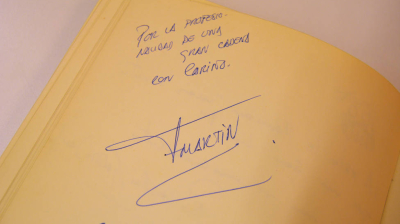 POR LA PROFESIO-
NALIDAD DE UNA
GRAN CADENA
CON CARIÑO.
MARTIN